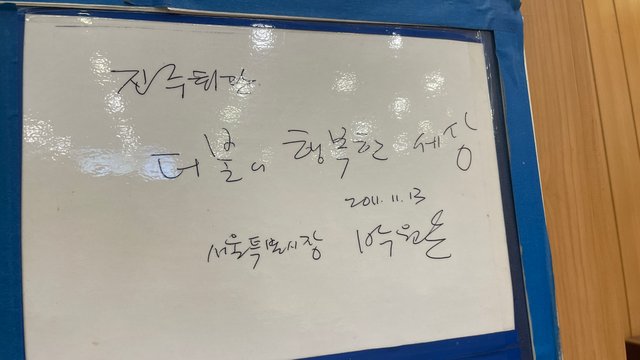 진주회관
더불어 행복한 세상
2011. 11. 13
서울특별시장 박원순